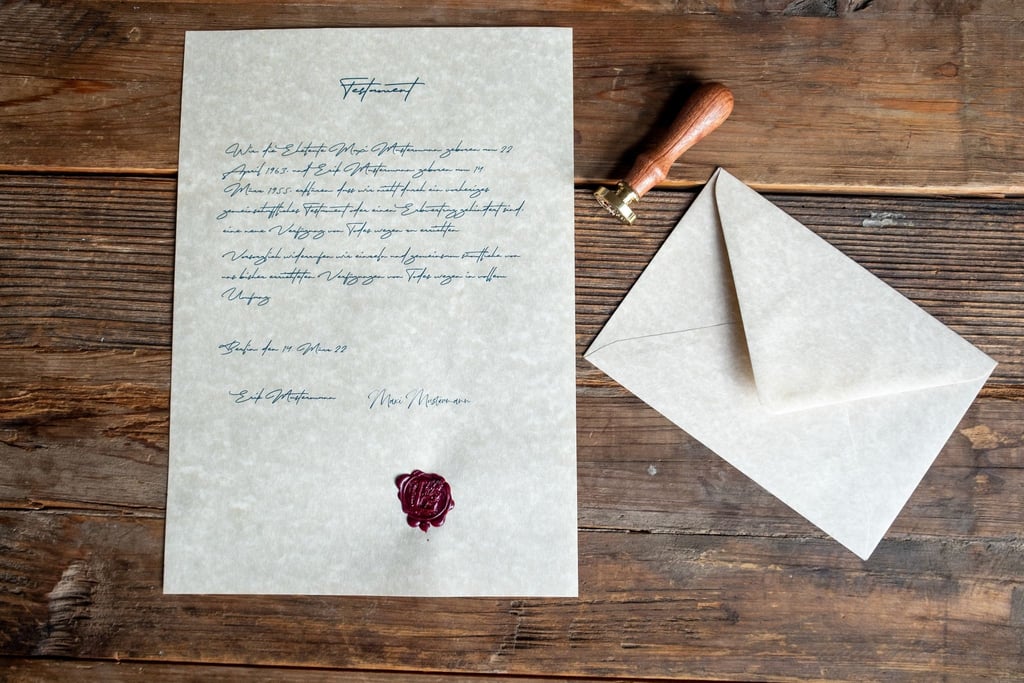 Testament
Wir die Eheleute Maxi Mustermann geboren am 22
April 1963. und Erik Mustermann geboren am 14
März 1955. erklären, dass wir nicht durch ein vorheriges
gemeinschaftliches Testament oder einen Erbvertrag gehindert sind,
eine neue Verfügung von Todes wegen zu errichten.
Vorsorglich widerrufen wir einzeln und gemeinsam sämtliche von
uns bisher errichteten Verfügungen von Todes wegen in vollem
Umfang
Berlin den 14. März 22
Erik Mustermann Maxi Mustermann